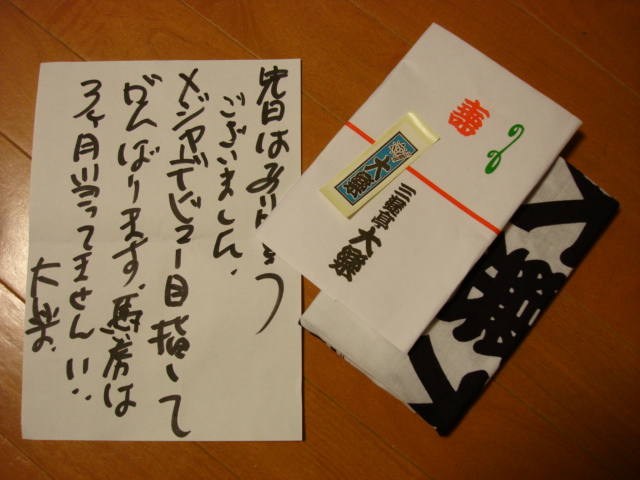 先日はありがとう
ございました。
メジャーデビュー目指して
がんばります。馬券は
3ヶ月当ってません!!
大楽。
大楽
三遊亭 大楽